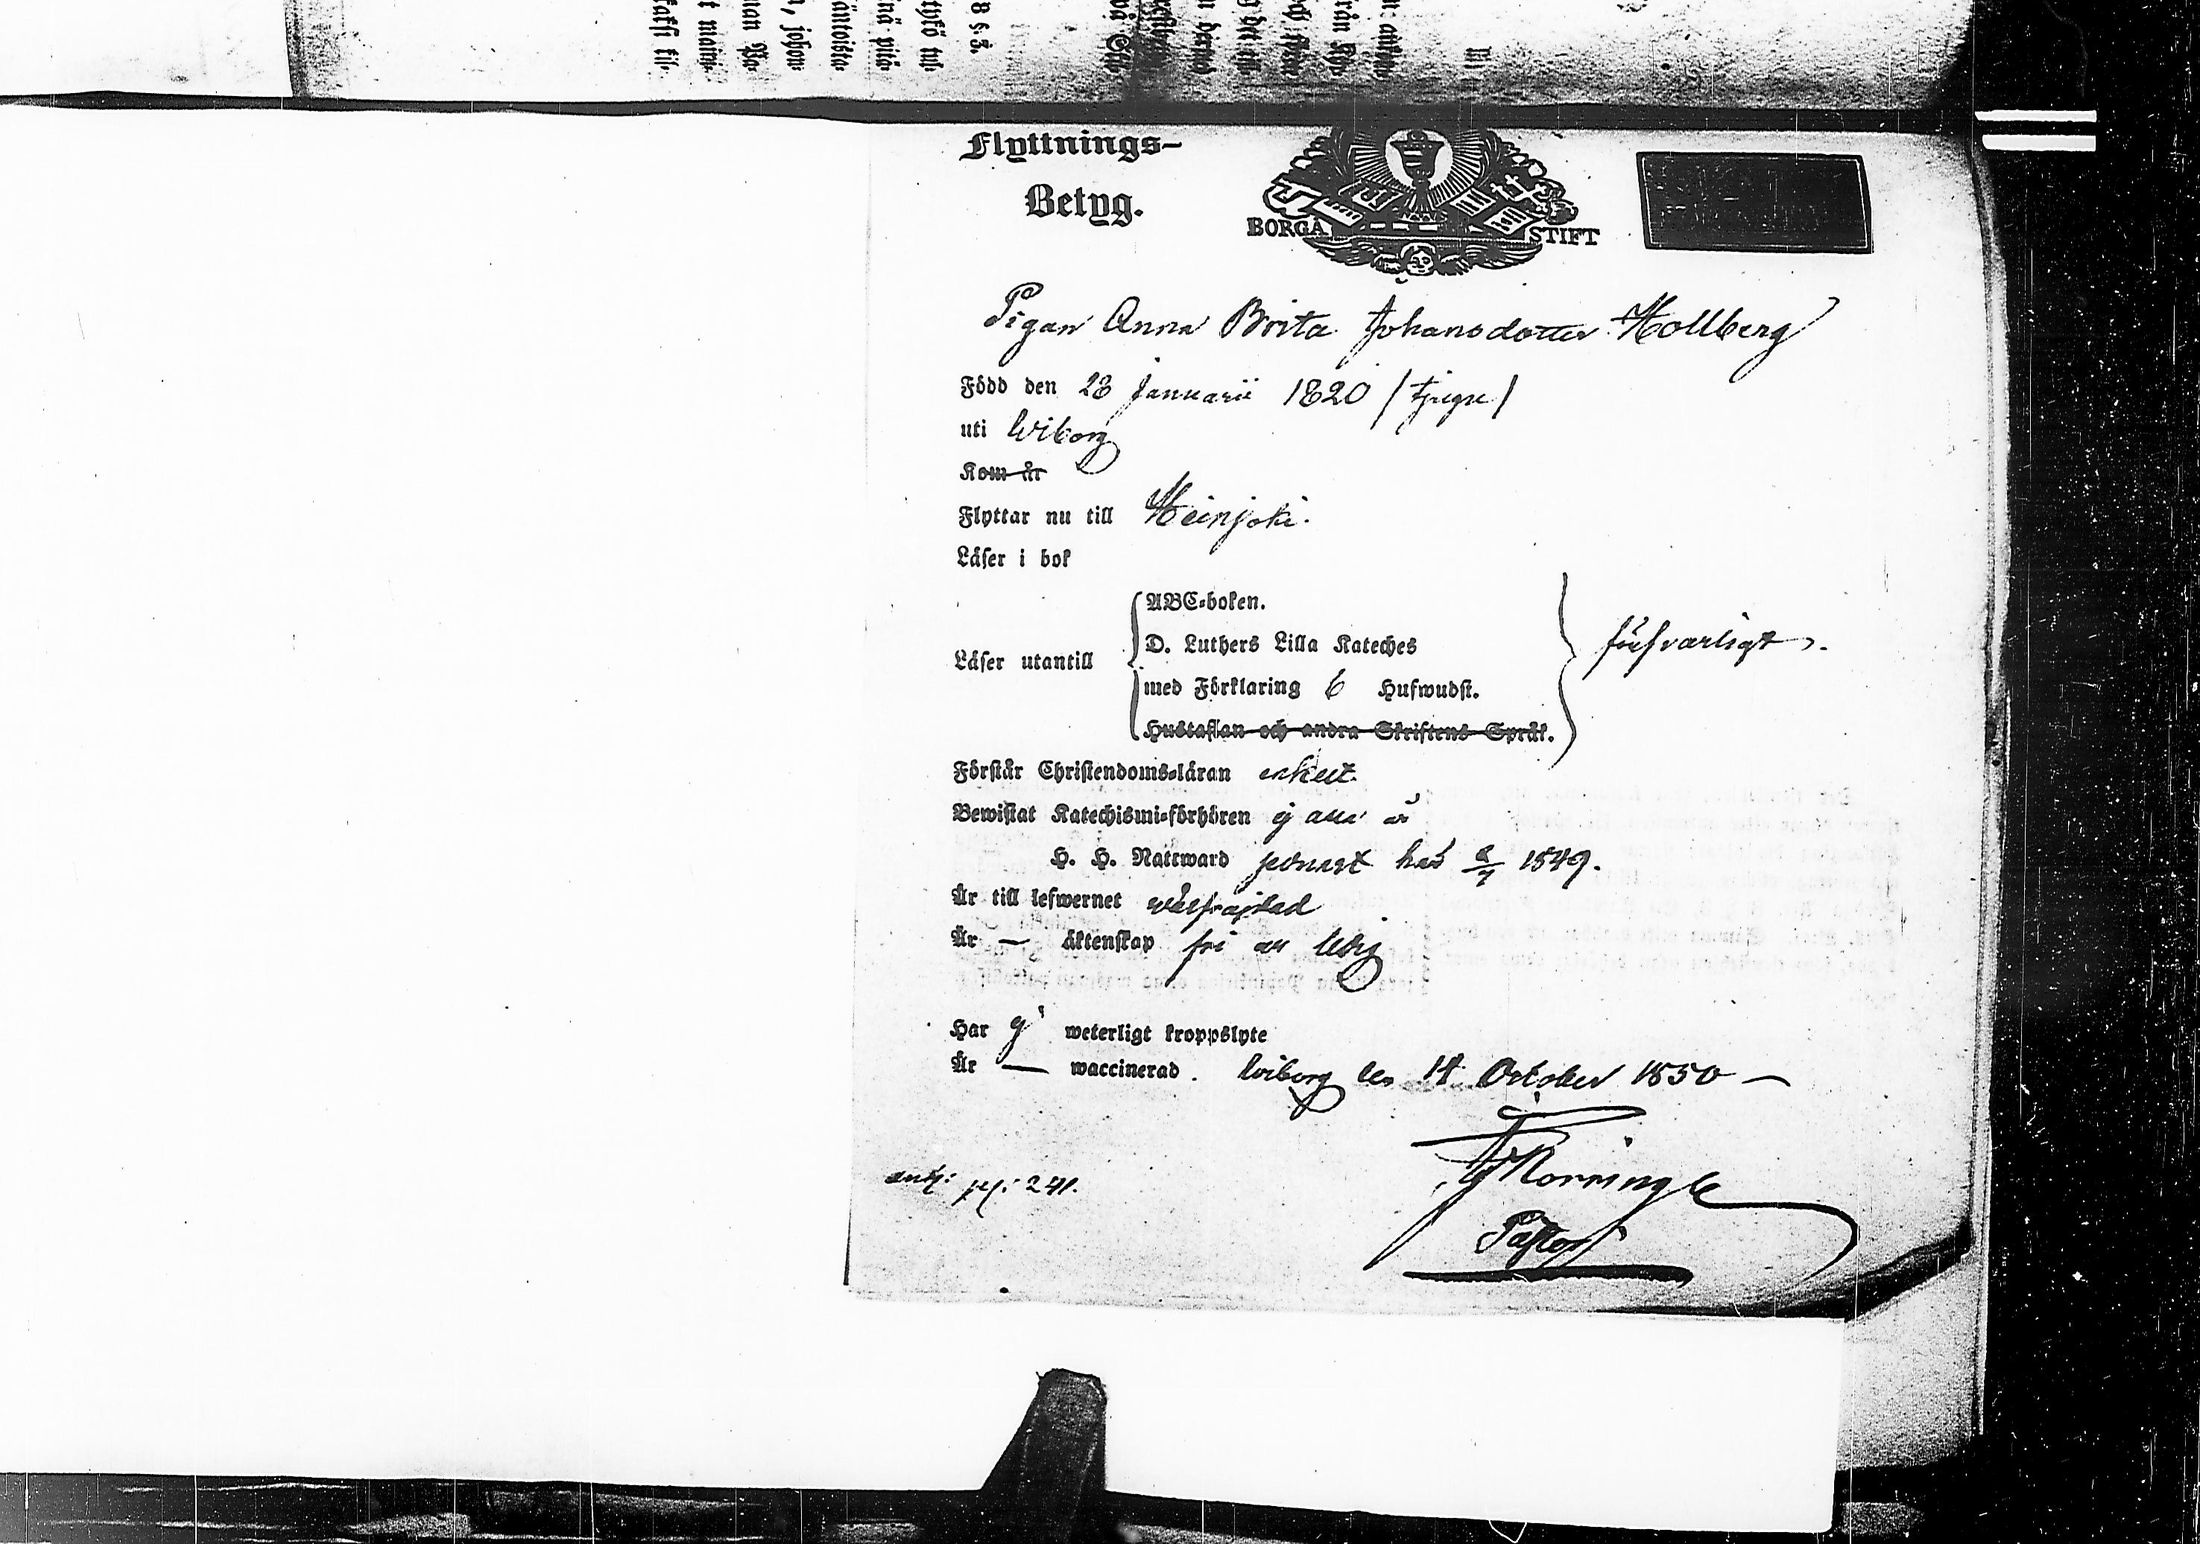 Flyttnings-
Betyg.
BORGÅ STIFT
Pigan Anna Brita Johansdotter Hollberg
Född den 23 Januarii 1820
uti Wiborg
Kom år
Flyttar nu till Heinjoki.
Läser i bok
Läser utantill
ABC-boken.
D. Luthers Lilla Kateches
med Förklaring 6 Hufwudst.
Hustaflan och andra Skriftens Språk.
försvarligt
Förstår Christendoms-läran enkelt
Bewistat Katechismi-förhören ej
H. H. Nattward senast här 8/7 1849.
Är till lefwernet wälfräjdad
Är — äktenskap fri och ledig
Har ej weterligt kroppslyte
Är — waccinerad. Wiborg den 14 October 1850 —
Pastor
241.
1863.